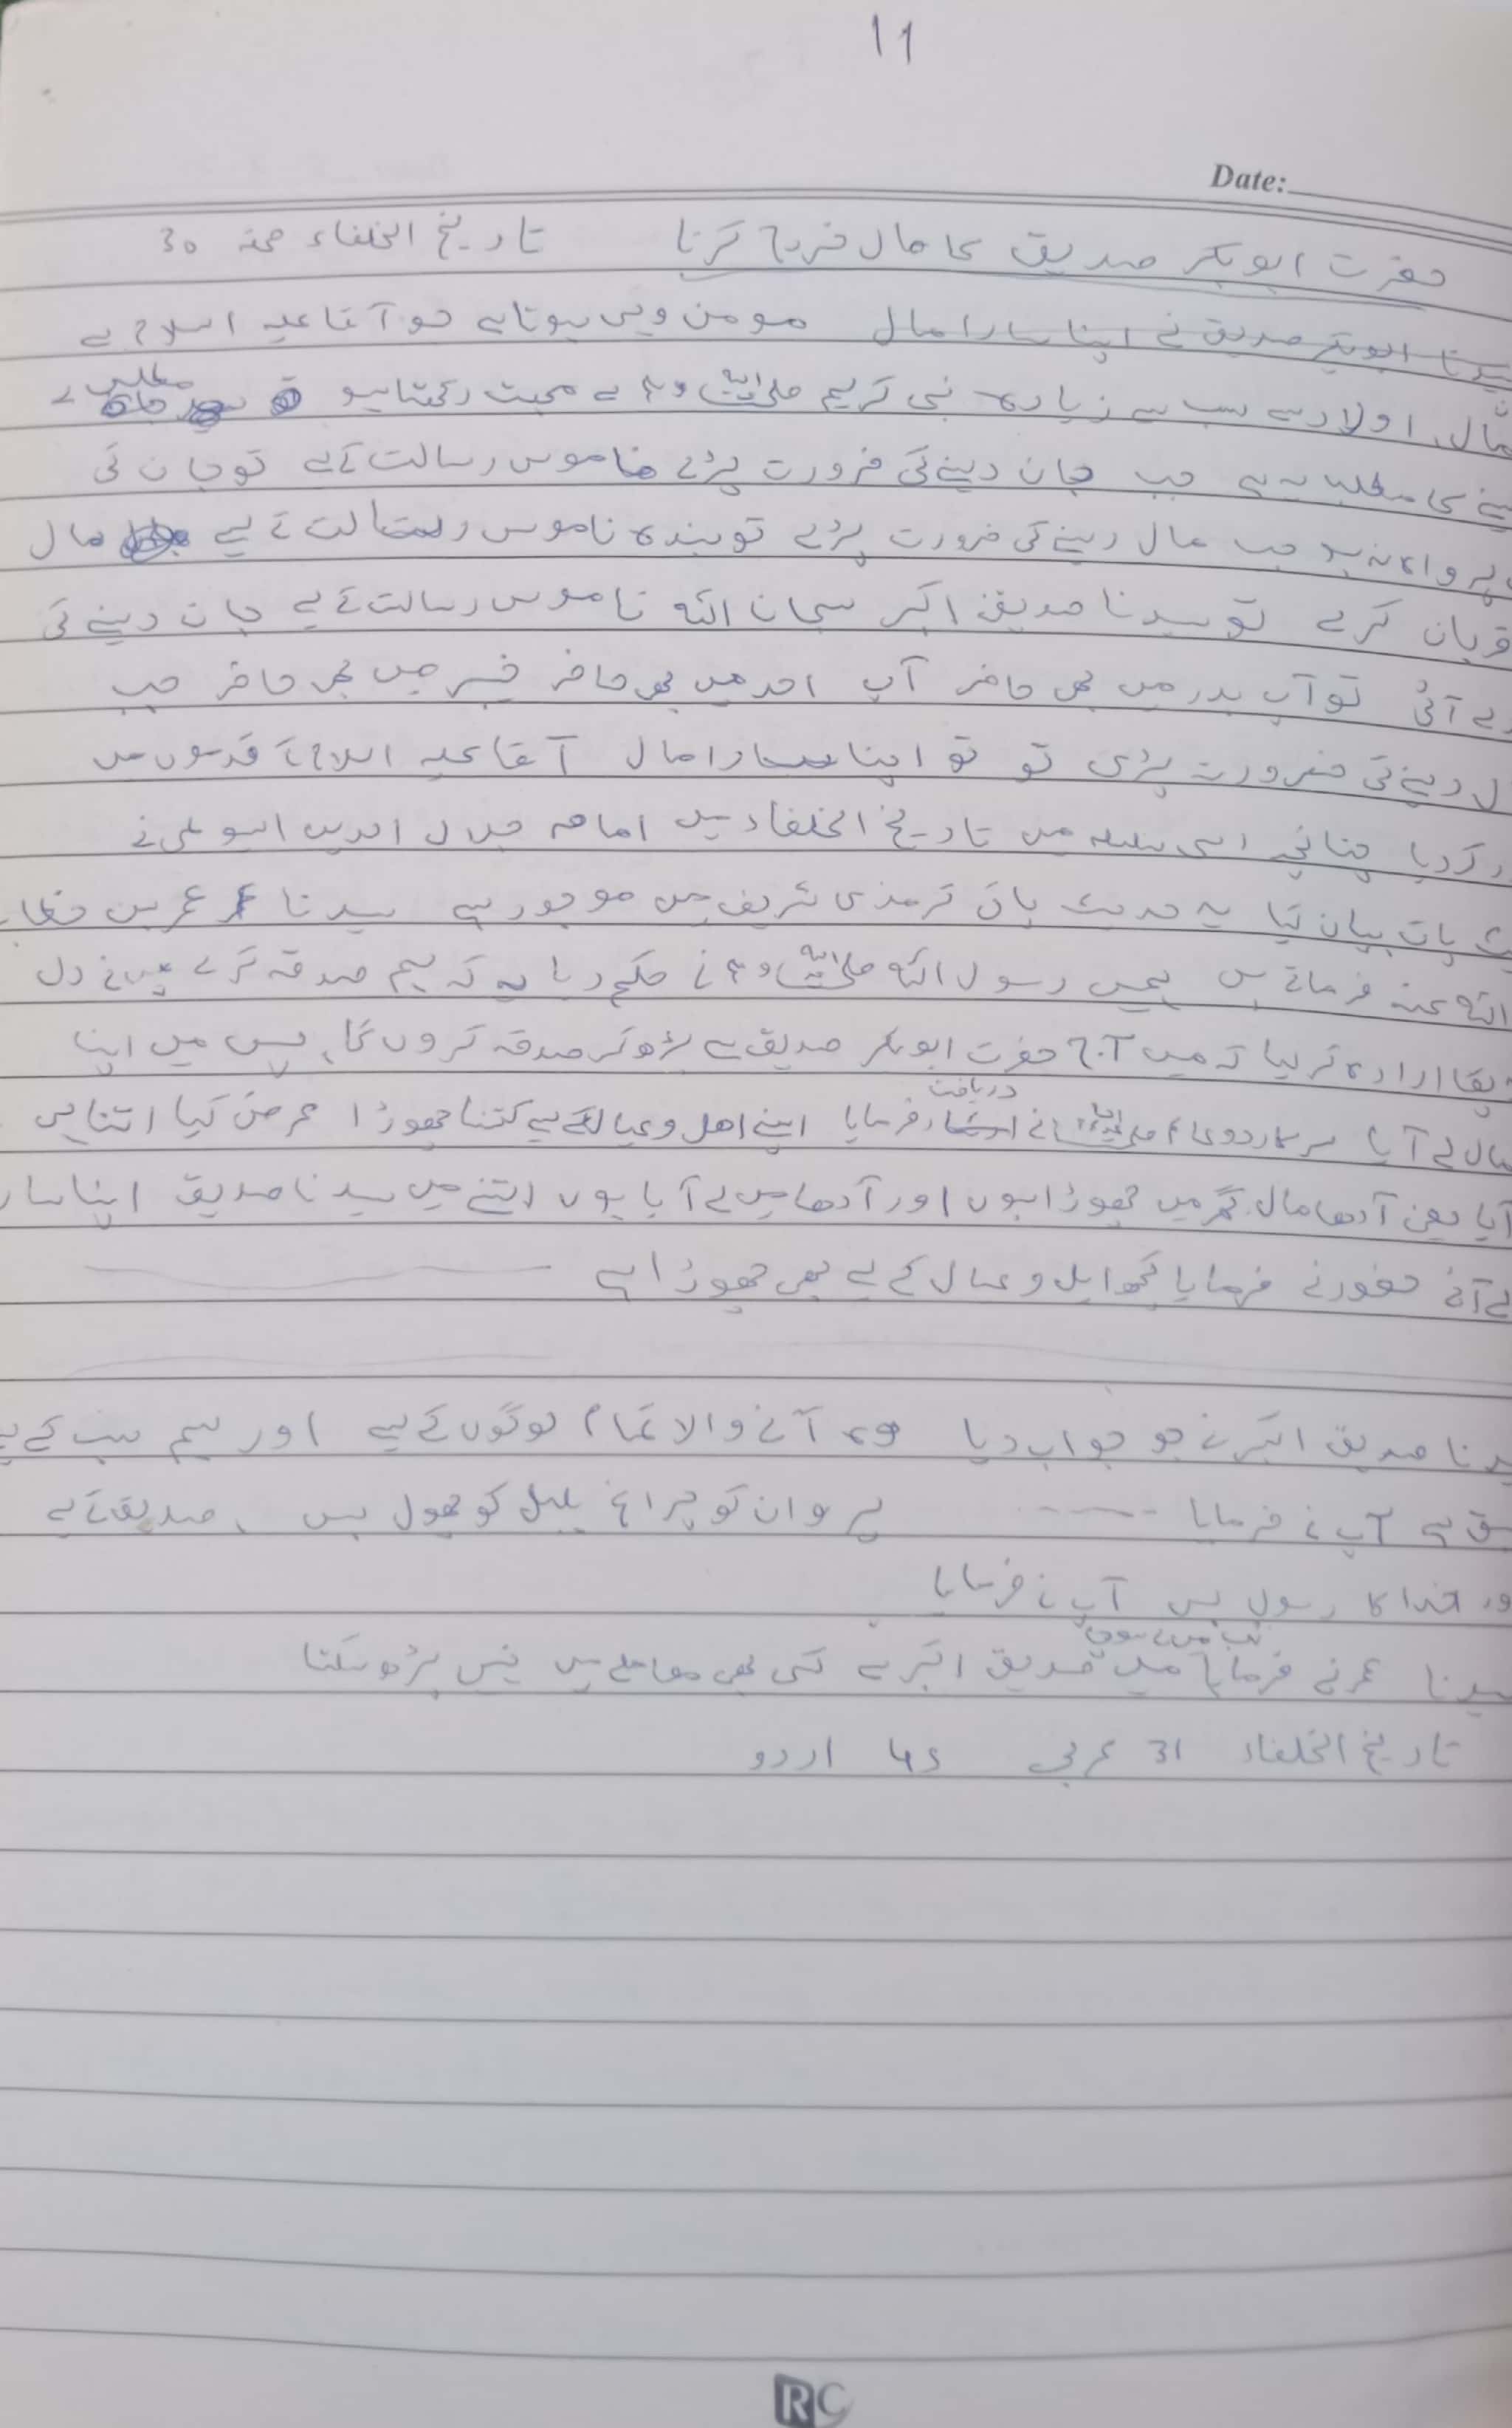 11
Date:
حضرت ابوبکر صدیق کا مال خرچ کرنا تاریخ الخلفاء صحفہ 30
سیدنا ابوبکر صدیق نے اپنا سارا مال مومن وہی ہوتا ہے جو آقا علیہ اسلام سے
مال، اولاد سے سب سے زیادہ نبی کریم صلی اللہ وسلم سے محبت رکھتا ہو مطلب
کا مطلب یہ ہے جب جان دینے کی ضرورت پڑے ناموس رسالت کے لیے تو جان کی
پرواہ نہ ہو جب مال دینے کی ضرورت پڑے تو بندہ ناموس رسالت کے لیے مال
قربان کرے تو سیدنا صدیق اکبر سبحان اللہ ناموس رسالت کے لیے جان دینے کی
آئی تو آپ بدر میں بھی حاضر آپ احد میں بھی حاضر خیبر میں بھی حاضر جب
دینے کی ضرورت پڑی تو تو اپنا سارا مال آقا علیہ اسلام کے قدموں میں
کر دیا چنانچہ اسی سلسلہ میں تاریخ الخلفاء میں امام جلال الدین السیوطی نے
بات بیان کیا یہ حدیث پاک ترمذی شریف میں موجود ہے سیدنا عمر بن خطاب
اللہ عنہ فرماتے ہیں ہمیں رسول اللہ صلی اللہ وسلم نے حکم دیا یہ کہ ہم صدقہ کرے میں نے دل
پکا ارادہ کر لیا کہ میں آج حضرت ابوبکر صدیق سے بڑھ کر صدقہ کروں گا، پس میں اپنا
مال لے آیا سرکار دو عالم صلی اللہ نے دریافت فرمایا اپنے اھل و عیال کے لیے کتنا چھوڑا عرض کیا اتنا ہی
آیا یعنی آدھا مال گھر میں چھوڑا ہوں اور آدھا میں لے آیا ہوں اتنے میں سیدنا صدیق اپنا سارا
لے آئے حضور نے فرمایا کچھ اہل و عیال کے لیے بھی چھوڑا ہے
سیدنا صدیق اکبر نے جو جواب دیا وہ آنے والا تمام لوگوں کے لیے اور ہم سب کے لیے
سبق ہے آپ نے فرمایا ---- پروان کو چراغ بلبل کو پھول بس ، صدیق کے لیے
خدا کا رسول بس آپ نے فرمایا
سیدنا عمر نے فرمایا میں صدیق اکبر سے کسی بھی معاملے میں نہیں بڑھ سکتا
تاریخ الخلفاء 31 عربی 45 اردو
RC